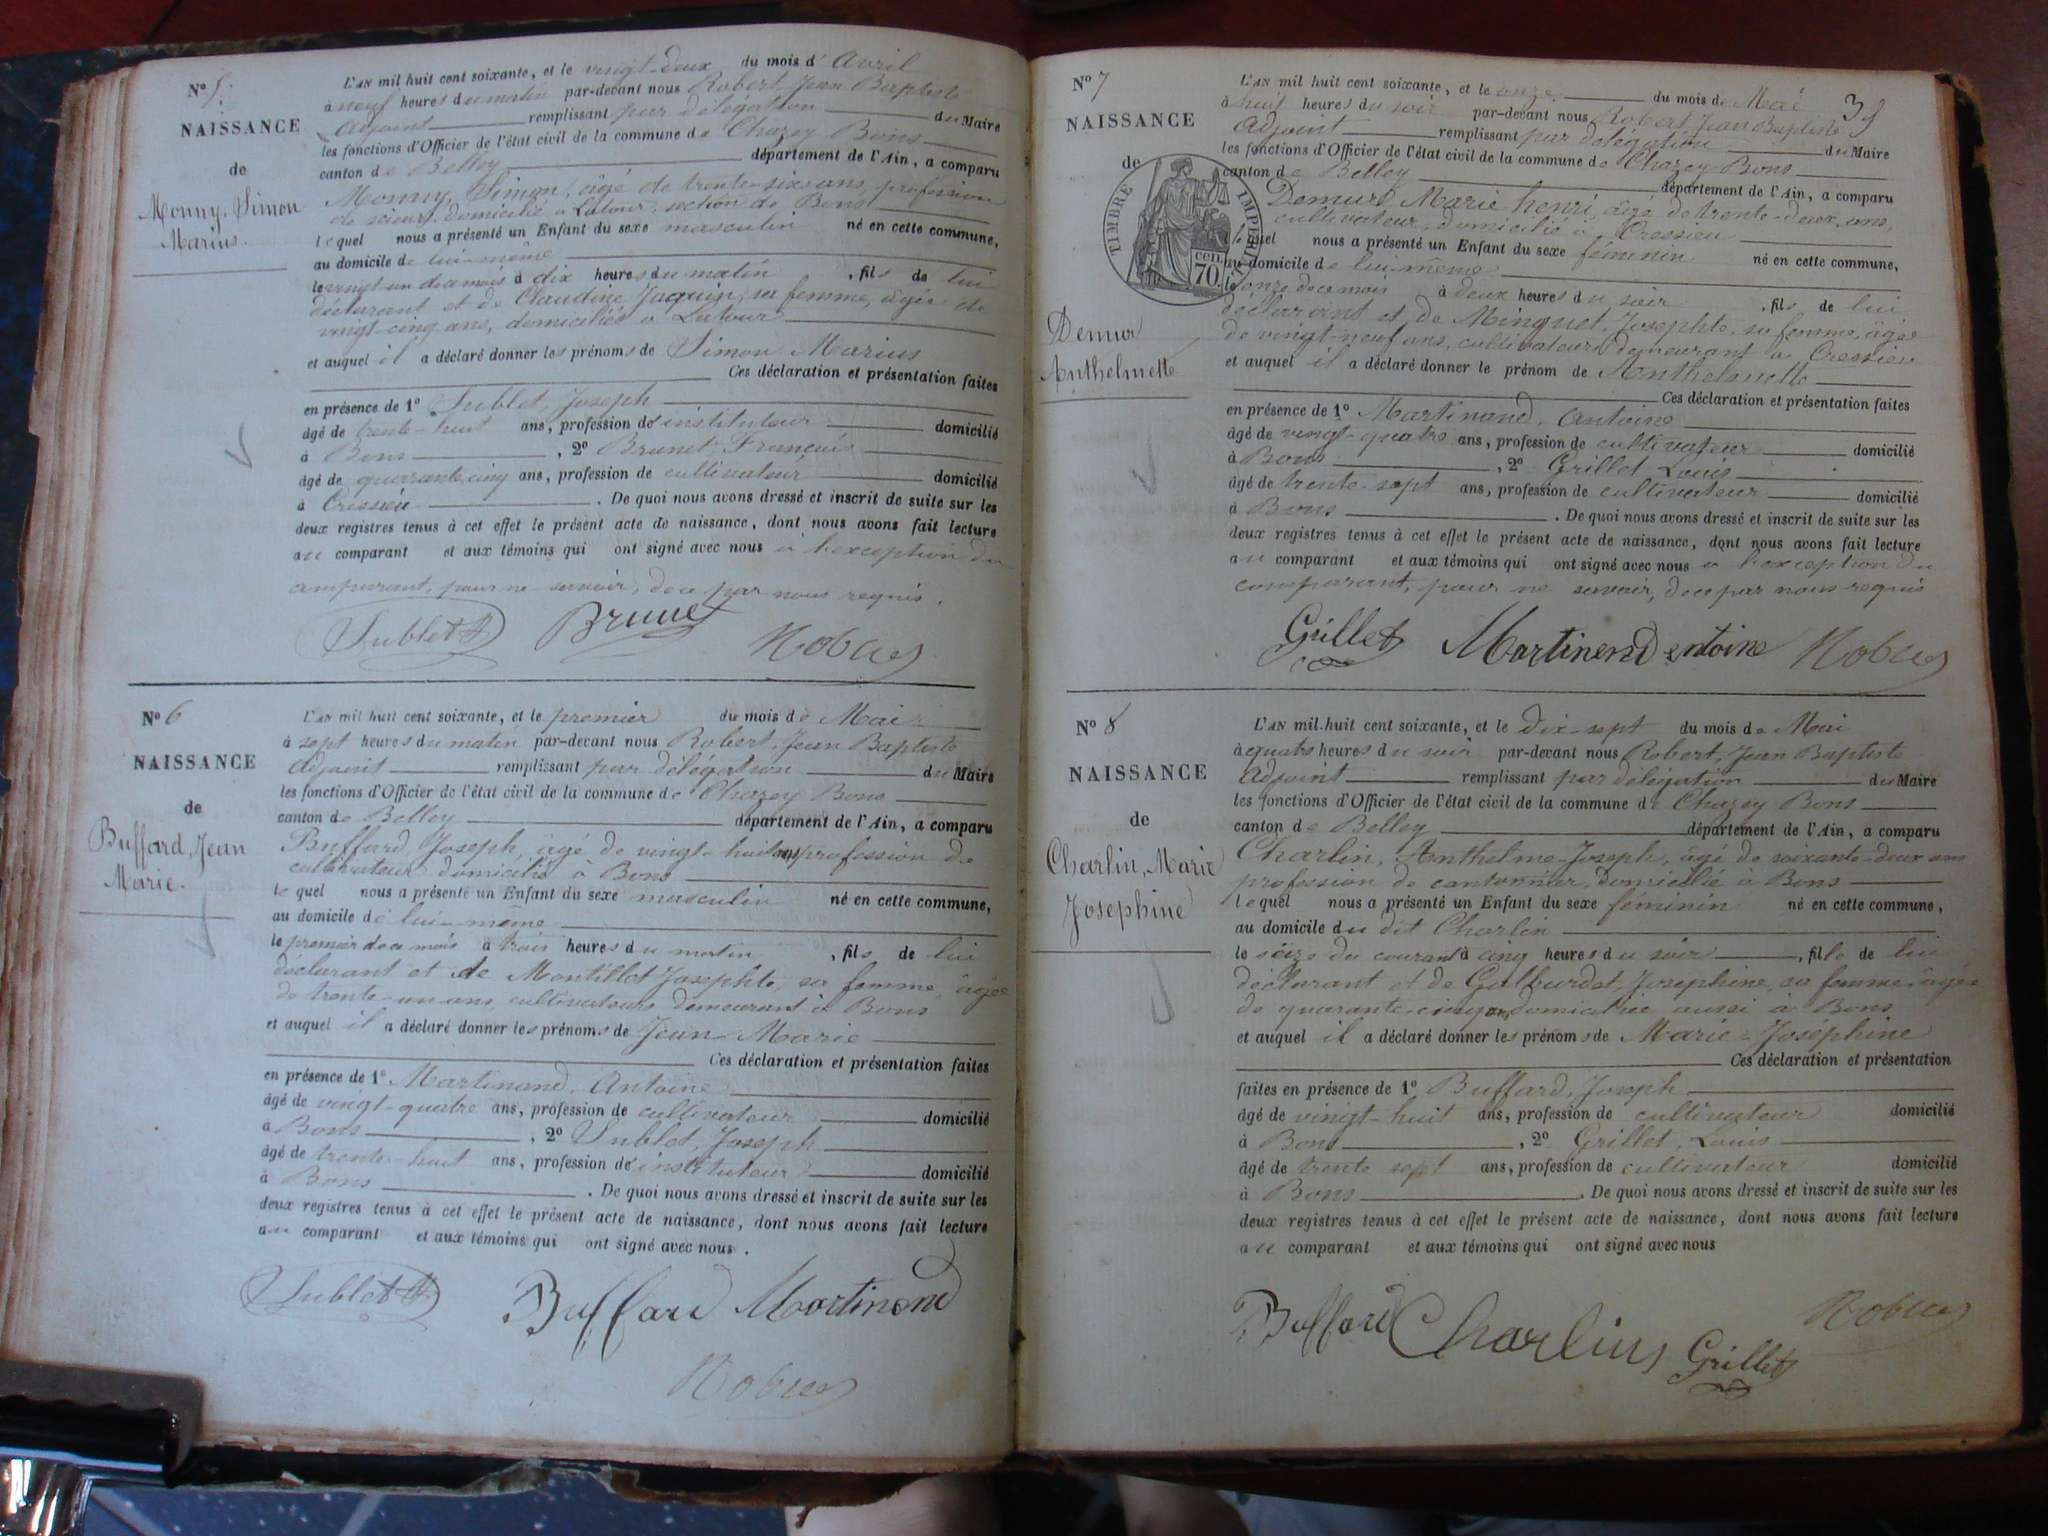 N° 5.
NAISSANCE
de
Monny, Simon
Marius.
L'AN mil huit cent soixante, et le vingt-deux du mois d'Avril
à neuf heures du matin par-devant nous Robert, Jean Baptiste
Adjoint remplissant par délégation du Maire
les fonctions d'Officier de l'état civil de la commune de Chazey Bons
canton de Belley département de l'Ain, a comparu
Monny, Simon, âgé de trente-six ans, profession
de scieur, domicilié à Latour, section de Bons
lequel nous a présenté un Enfant du sexe masculin né en cette commune,
au domicile de lui-même
le vingt un du mois à dix heures du matin, fils de lui
déclarant et de Claudine Jaquin, sa femme, âgée de
vingt-cinq ans, domiciliés à Latour
et auquel il a déclaré donner les prénoms de Simon Marius
Ces déclaration et présentation faites
en présence de 1° Sublet, Joseph
âgé de trente-huit ans, profession d'instituteur domicilié
à Bons, 2° Brunet, François
âgé de quarante cinq ans, profession de cultivateur domicilié
à Cressieu. De quoi nous avons dressé et inscrit de suite sur les
deux registres tenus à cet effet le présent acte de naissance, dont nous avons fait lecture
au comparant et aux témoins qui ont signé avec nous à l'exception du
comparant, pour ne savoir, de ce par nous requis.
Sublet Brunet Robert
N° 6
NAISSANCE
de
Buffard, Jean
Marie.
L'AN mil huit cent soixante, et le premier du mois de Mai
à sept heures du matin par-devant nous Robert, Jean Baptiste
Adjoint remplissant par délégation du Maire
les fonctions d'Officier de l'état civil de la commune de Chazey Bons
canton de Belley département de l'Ain, a comparu
Buffard, Joseph, âgé de vingt-huit ans, profession de
cultivateur domicilié à Bons
lequel nous a présenté un Enfant du sexe masculin né en cette commune,
au domicile de lui-même
le premier de ce mois à trois heures du matin, fils de lui
déclarant et de Montillet Josephte, sa femme, âgée
de trente-un ans, cultivateurs demeurant à Bons
et auquel il a déclaré donner les prénoms de Jean Marie
Ces déclaration et présentation faites
en présence de 1° Martinand, Antoine
âgé de vingt-quatre ans, profession de cultivateur domicilié
à Bons, 2° Sublet, Joseph
âgé de trente-huit ans, profession d'instituteur domicilié
à Bons. De quoi nous avons dressé et inscrit de suite sur les
deux registres tenus à cet effet le présent acte de naissance, dont nous avons fait lecture
au comparant et aux témoins qui ont signé avec nous.
Sublet Buffard Martinand
Robert
N° 7
NAISSANCE
de
TIMBRE IMPÉRIAL
70 cen.
Demur
Anthelmette
L'AN mil huit cent soixante, et le onze du mois de Mai
à huit heures du soir par-devant nous Robert, Jean Baptiste
Adjoint remplissant par délégation du Maire
les fonctions d'Officier de l'état civil de la commune de Chazey Bons
canton de Belley département de l'Ain, a comparu
Demur, Marie henri, âgé de trente-deux ans,
cultivateur, domicilié à Cressieu
lequel nous a présenté un Enfant du sexe féminin né en cette commune,
au domicile de lui-même
le onze de ce mois à deux heures du soir, fils de lui
déclarant et de Minguet, Josephte, sa femme, âgée
de vingt-neuf ans, cultivateurs demeurant à Cressieu
et auquel il a déclaré donner le prénom de Anthelmette
Ces déclaration et présentation faites
en présence de 1° Martinand, Antoine
âgé de vingt-quatre ans, profession de cultivateur domicilié
à Bons, 2° Grillet Louis
âgé de trente-sept ans, profession de cultivateur domicilié
à Bons. De quoi nous avons dressé et inscrit de suite sur les
deux registres tenus à cet effet le présent acte de naissance, dont nous avons fait lecture
au comparant et aux témoins qui ont signé avec nous à l'exception du
comparant, pour ne savoir, de ce par nous requis
Grillet Martinend entoine Robert
N° 8
NAISSANCE
de
Charlin, Marie
Josephine
L'AN mil huit cent soixante, et le Dix-sept du mois de Mai
à quatre heures du soir par-devant nous Robert, Jean Baptiste
Adjoint remplissant par délégation du Maire
les fonctions d'Officier de l'état civil de la commune de Chazey Bons
canton de Belley département de l'Ain, a comparu
Charlin, Anthelme-Joseph, âgé de soixante-deux ans
profession de cantonnier, domicilié à Bons
lequel nous a présenté un Enfant du sexe féminin né en cette commune,
au domicile du dit Charlin
le seize du courant à cinq heures du soir, fille de lui
déclarant et de Galburdet, Josephine, sa femme, âgée
de quarante-cinq ans, domiciliée aussi à Bons
et auquel il a déclaré donner les prénoms de Marie-Joséphine
Ces déclaration et présentation
faites en présence de 1° Buffard, Joseph
âgé de vingt-huit ans, profession de cultivateur domicilié
à Bons, 2° Grillet, Louis
âgé de trente sept ans, profession de cultivateur domicilié
à Bons. De quoi nous avons dressé et inscrit de suite sur les
deux registres tenus à cet effet le présent acte de naissance, dont nous avons fait lecture
au comparant et aux témoins qui ont signé avec nous
Buffard Charlin Grillet Robert